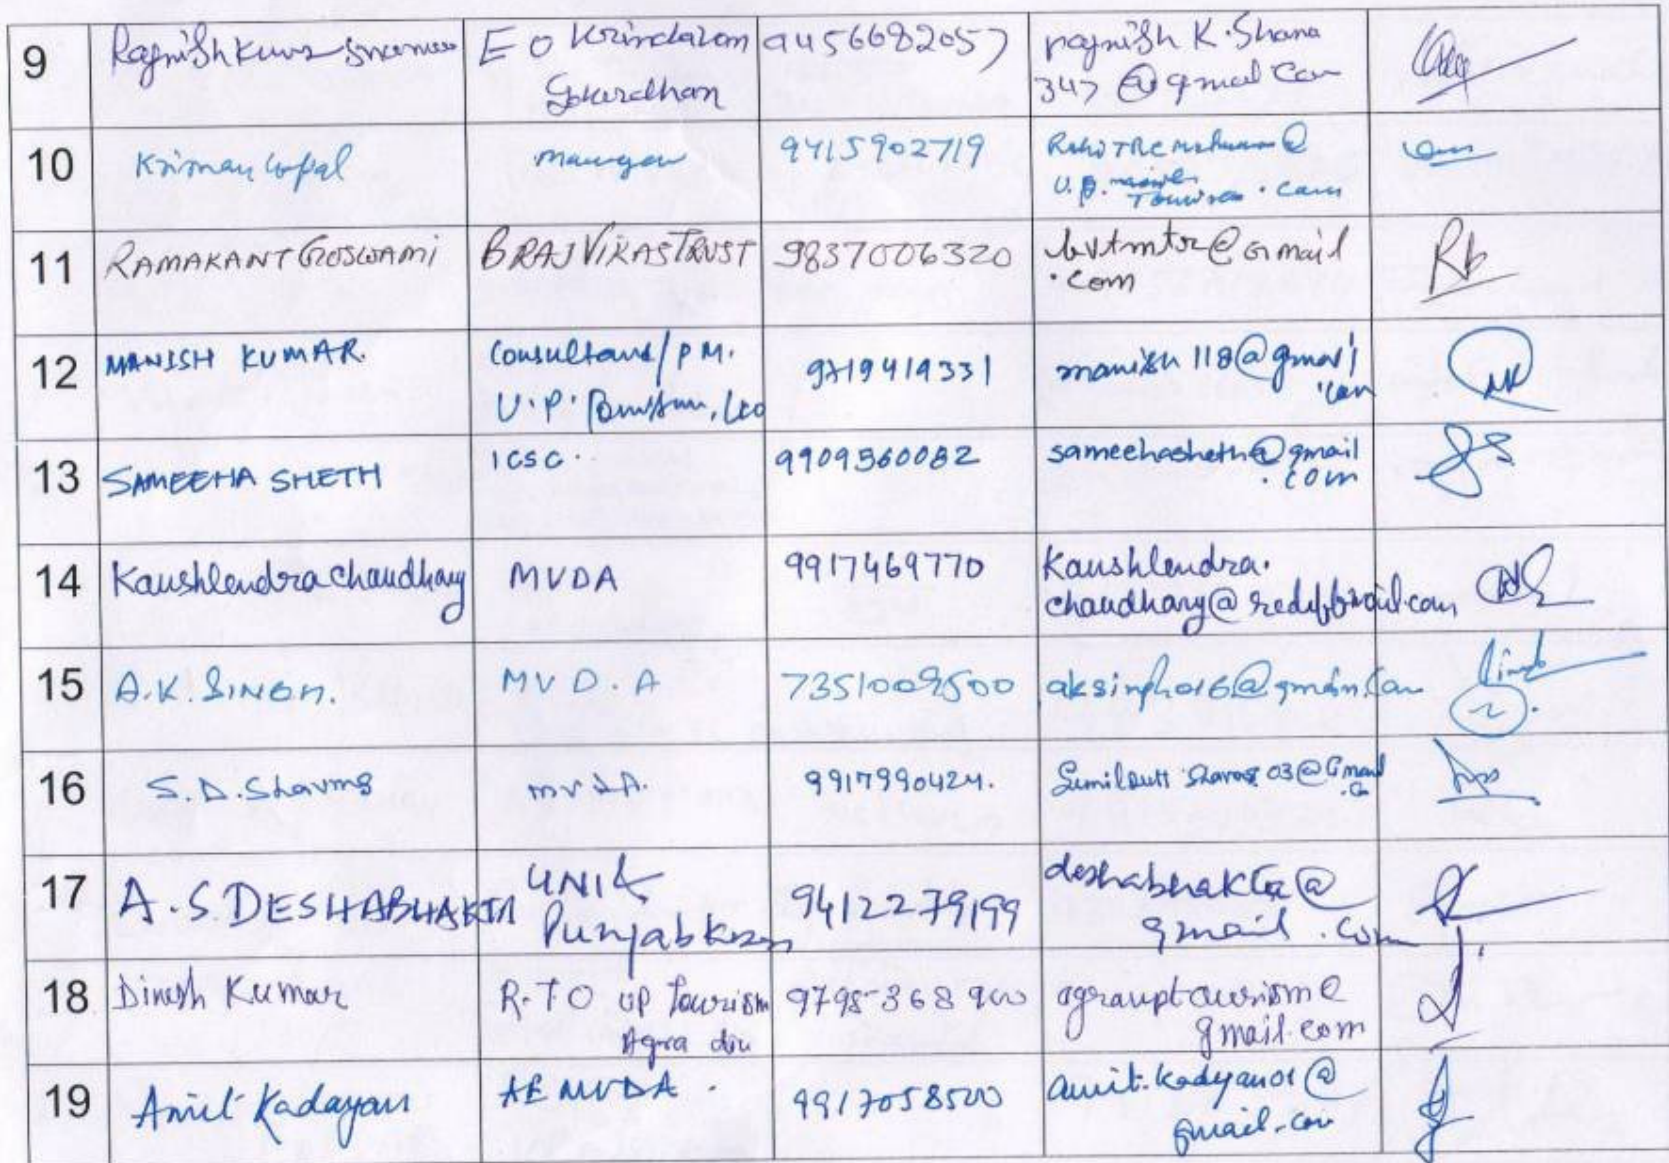 9 Rajnish Kumar Sharma E O Vrindavan 9456682057 rajnish K. Shama
Goverdhan 347 @ gmail com
10 Krishan Gopal 9415902719
U.P. Tourism . com
11 RAMAKANT GOSWAMI BRAJ VIKAS TRUST 9837006320 bvtmtr@Gmail
.com
12 MANISH KUMAR. Consultant/PM. 9719419331 manish 118@gmail
U.P. .com
13 SAMEEHA SHETH ICSC. 9909560082 sameehasheth@gmail
.com
14 Kaushlendra chaudhary MVDA 9917469770 Kaushlendra.
chaudhary@rediffmail.com
15 A.K. SINGH. MVD.A 7351009500 aksingh016@gmail.com
16 S.D. Sharma MVDA. 9917990424. Sunildutt Sharma 03@Gmail
.com
17 A.S. DESHABHAKTA 9412279199 deshabhakta@
gmail.com
18 Dinesh Kumar R.T O UP Tourism 9795368900 agrauptourism@
Agra div gmail.com
19 Amit Kadayan AE MVDA. 9917058500 amit.kadyan01@
gmail.com